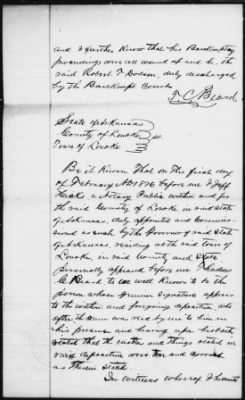 and I further Know that his Bankruptcy
proceedings were all wound up and he, the
said Robert T. Dodson, duly discharged
by the Bankrupt Court
T. C. Beard
State of Arkansas
County of Lonoke ss.
Town of Lonoke
Be it Known That on This first day
of February AD 1876 before me J Jeff
Hicks a Notary Public within and for
the said County of Lonoke in and State
of Arkansas, duly appointed and Commis-
sioned as such by the Governor of said State
of Arkansas, residing at the said town of
Lonoke, in said County and State
personally appeared before me Thadeus
C Beard to me well Known to be the
person whose genuine signature appears
to the within and foregoing deposition who
after the same was read by me to him in
his presence and having upon his oath
stated that the matters and things stated in
said deposition were true and correct
as Therein Stated
In witness whereof I have